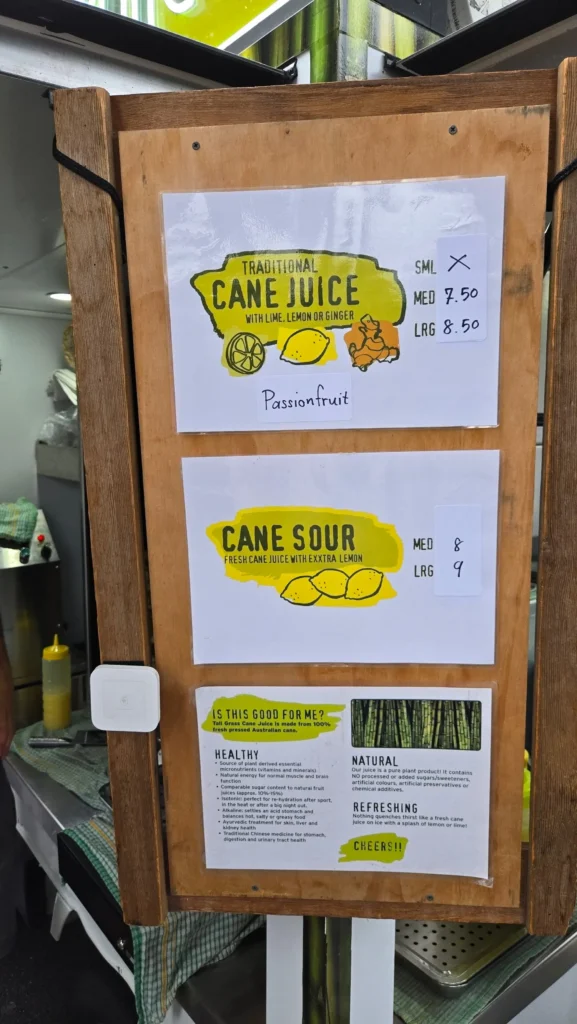 TRADITIONAL
CANE JUICE
WITH LIME, LEMON OR GINGER
SML X
MED 7.50
LRG 8.50
Passionfruit
CANE SOUR
FRESH CANE JUICE WITH EXXTRA LEMON
MED 8
LRG 9
IS THIS GOOD FOR ME?
Tall Grass Cane Juice is made from 100%
fresh pressed Australian cane.
HEALTHY
• Source of plant derived essential
micronutrients (vitamins and minerals)
• Natural energy for normal muscle and brain
function
• Comparable sugar content to natural fruit
juices (approx. 10%-15%)
• Isotonic: perfect for re-hydration after sport,
in the heat or after a big night out.
• Alkaline: settles an acid stomach and
balances hot, salty or greasy food
• Ayurvedic treatment for skin, liver and
kidney health
• Traditional Chinese medicine for stomach,
digestion and urinary tract health
NATURAL
Our juice is a pure plant product! It contains
NO processed or added sugars/sweeteners,
artificial colours, artificial preservatives or
chemical additives.
REFRESHING
Nothing quenches thirst like a fresh cane
juice on ice with a splash of lemon or lime!
CHEERS!!